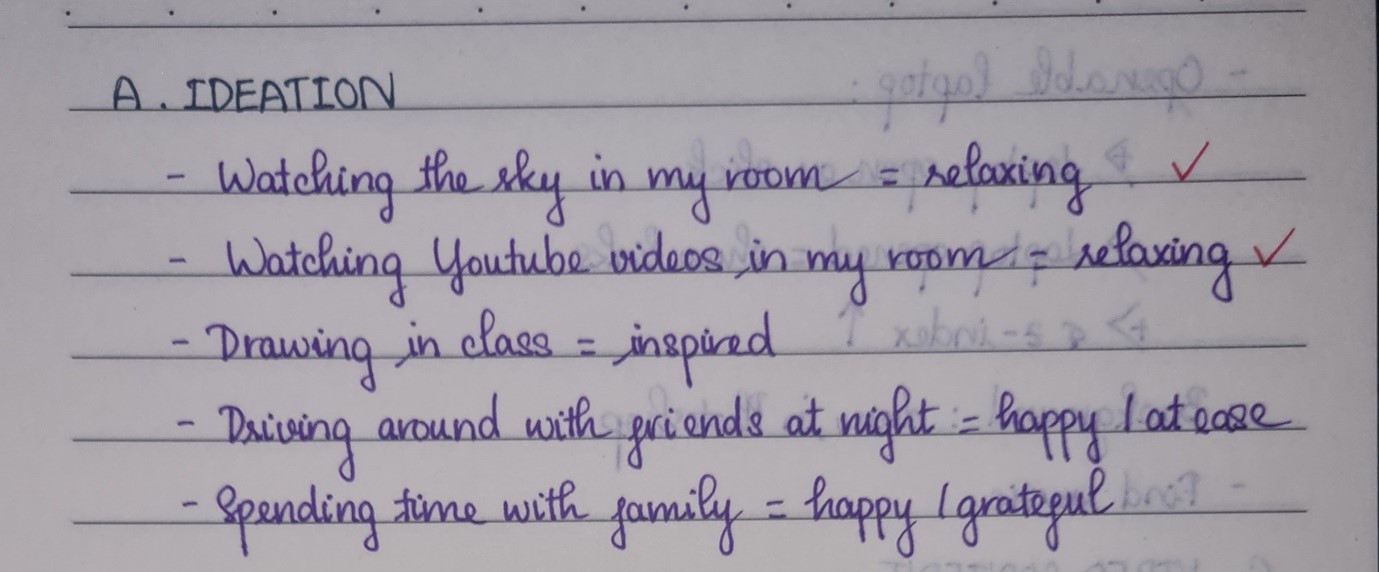 A. IDEATION
- Watching the sky in my room = relaxing ✓
- Watching Youtube videos in my room = relaxing ✓
- Drawing in class = inspired
- Driving around with friends at night = happy / at ease
- Spending time with family = happy / grateful